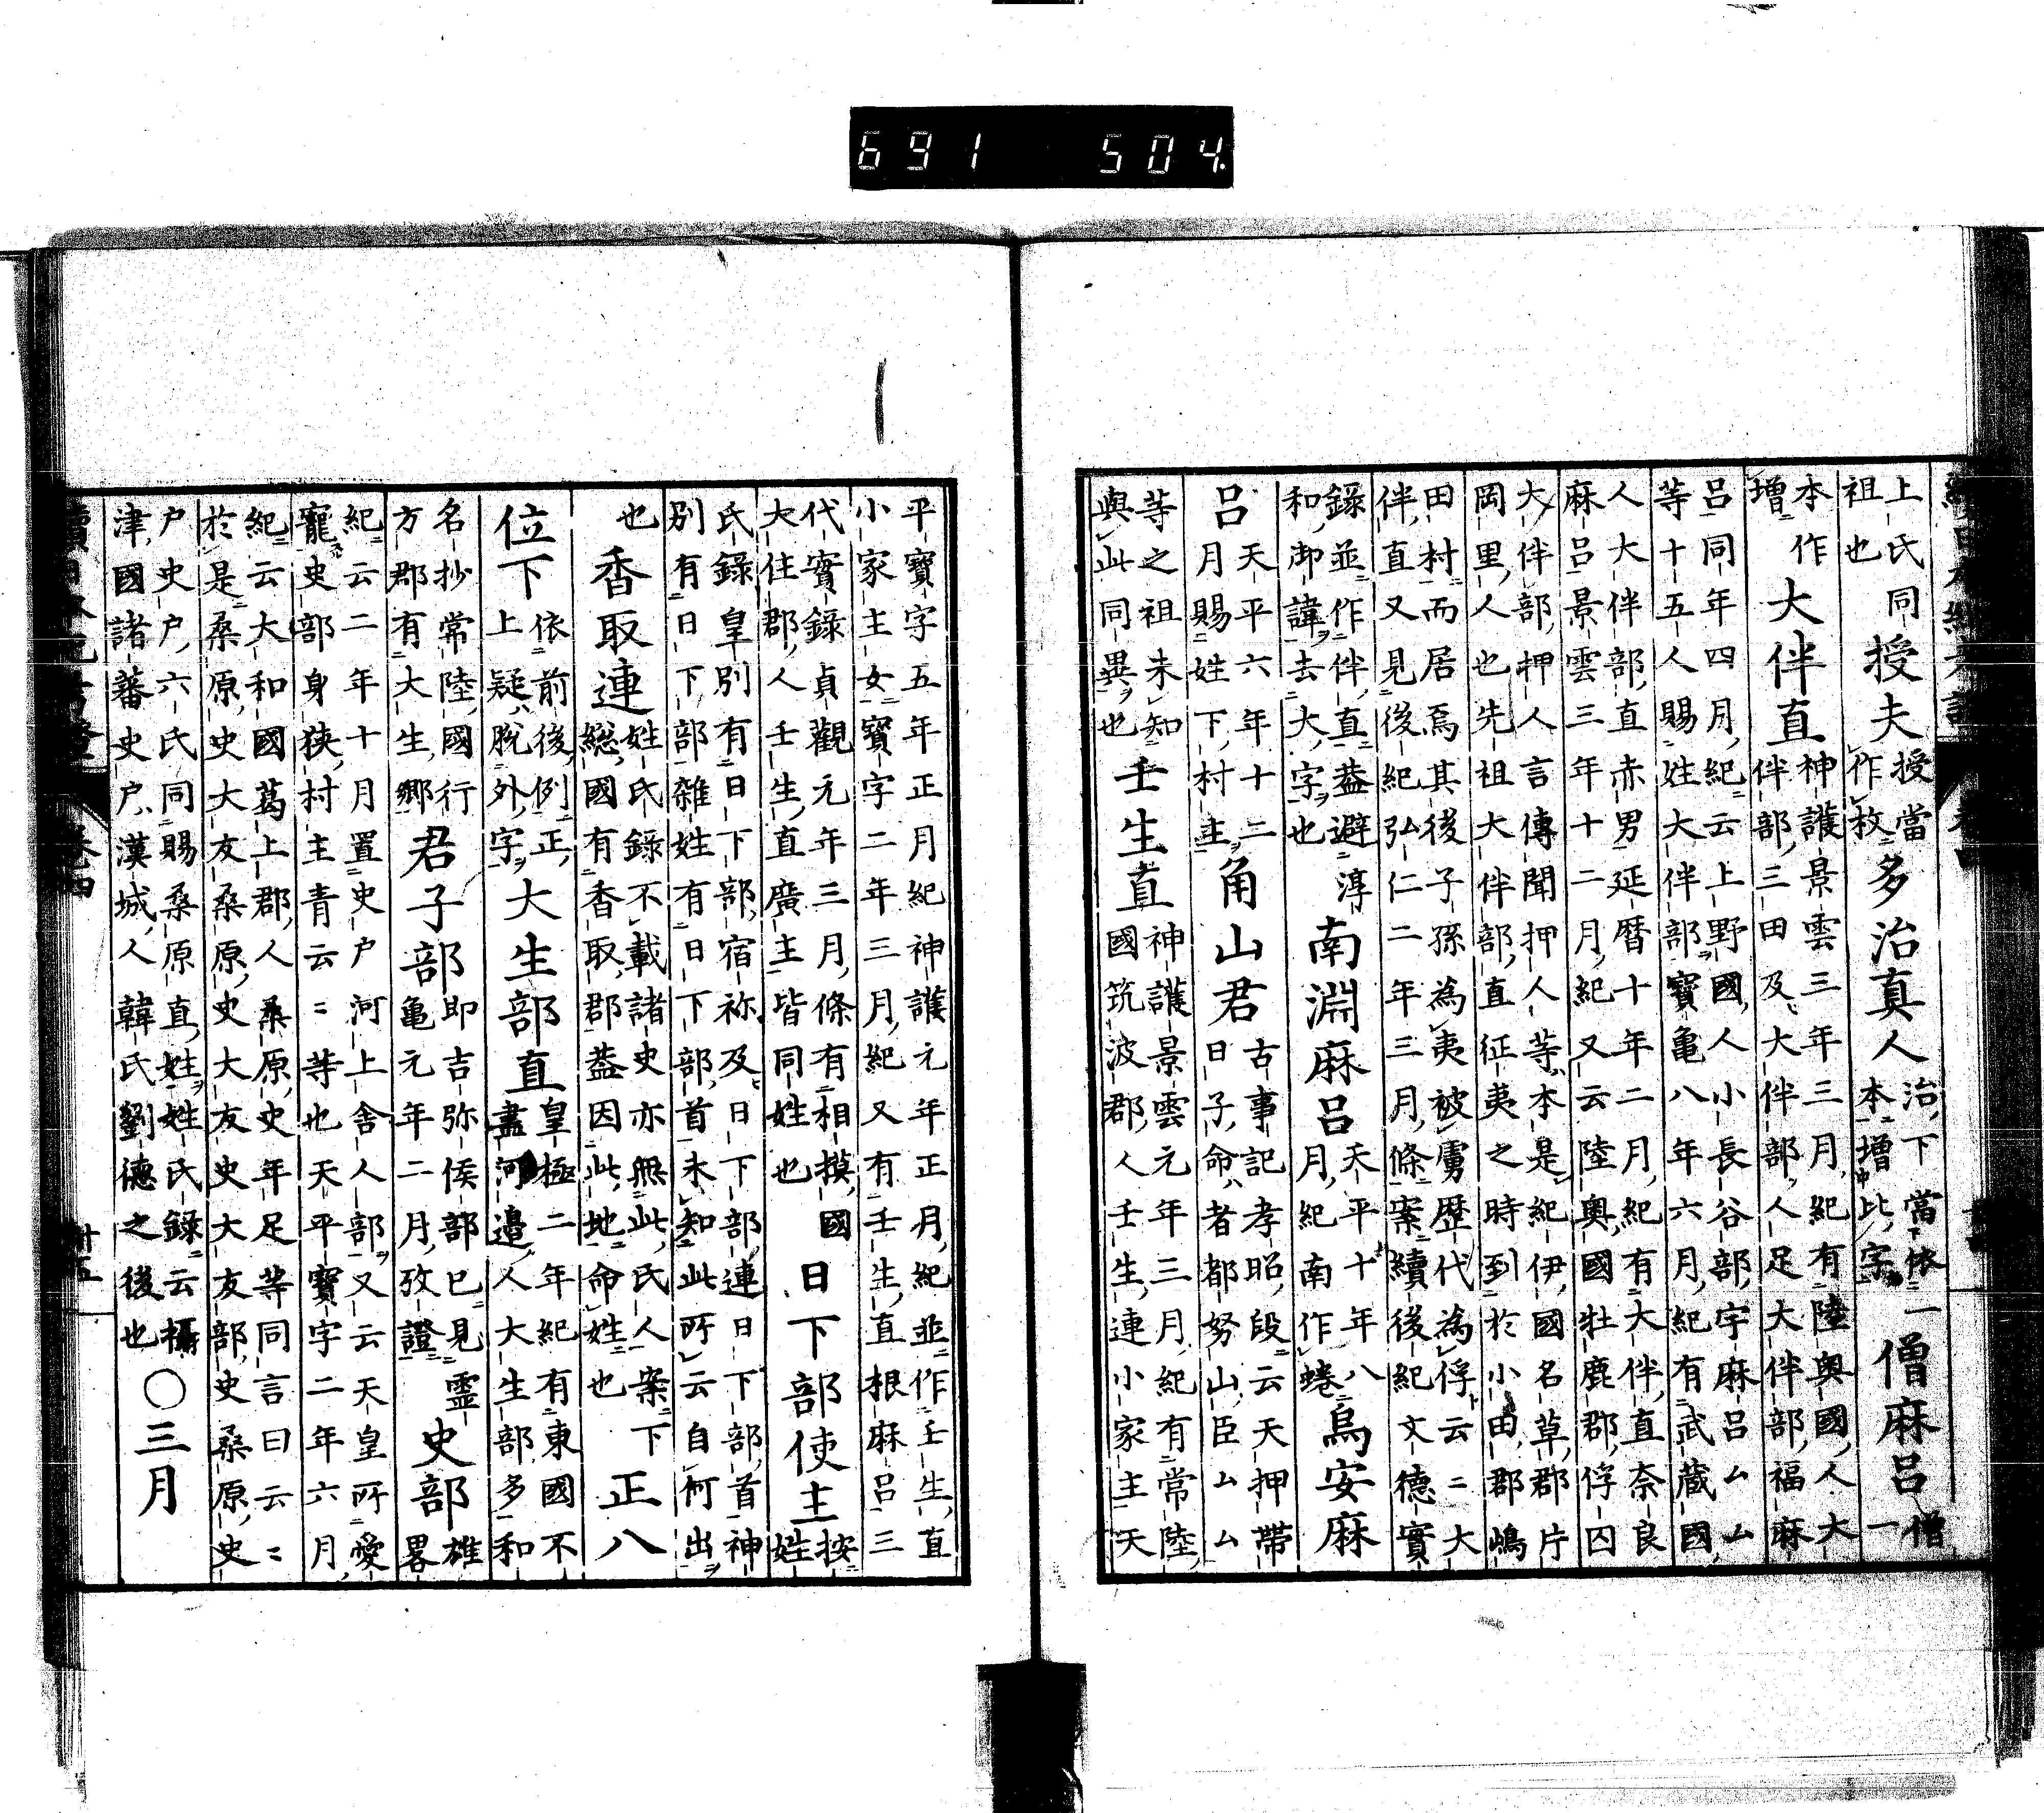 691 504
上氏同
祖也
授夫
授當
作枚
多治真人
治下當依一
本増此字
僧麻呂
僧一
本作
増
大伴直
神護景雲三年三月紀有陸奥國人大
伴部三田及大伴部人足大伴部福麻
呂同年四月紀云上野國人小長谷部宇麻呂厶厶
等十五人賜姓大伴部寶亀八年六月紀有武蔵國
人大伴部直赤男延暦十年二月紀有大伴直奈良
麻呂景雲三年十二月紀又云陸奥國牡鹿郡俘囚
大伴部押人言傳聞押人等本是紀伊國名草郡片
岡里人也先祖大伴部直征夷之時到於小田郡嶋
田村而居焉其後子孫為夷被虜歴代為俘云〻大
伴直又見後紀弘仁二年三月條案續後紀文德實
錄並作伴直葢避淳
和御諱去大字也
南淵麻呂
天平十年八
月紀南作蜷
烏安麻
呂
天平六年十二
月賜姓下村主
角山君
古事記孝昭段云天押帶
日子命者都努山臣厶厶
等之祖未知
與此同異也
壬生直
神護景雲元年三月紀有常陸
國筑波郡人壬生連小家主天
平寶字五年正月紀神護元年正月紀並作壬生直
小家主女寶字二年三月紀又有壬生直根麻呂三
代實錄貞觀元年三月條有相摸國
大住郡人壬生直廣主皆同姓也
日下部使主
按姓
氏錄皇別有日下部宿祢及日下部連日下部首神
別有日下部雜姓有日下部首未知此所云自何出
也
香取連
姓氏錄不載諸史亦無此氏人案下
総國有香取郡葢因此地命姓也
正八
位下
依前後例正
上疑脫外字
大生部直
皇極二年紀有東國不
盡河邉人大生部多和
名抄常陸國行
方郡有大生郷
君子部
即吉弥侯部已見靈
亀元年二月攷證
史部
雄畧
紀云二年十月置史戸河上舎人部又云天皇所愛
寵史部身狭村主青云〻等也天平寶字二年六月
紀云大和國葛上郡人桑原史年足等同言曰云〻
於是桑原史大友桑原史大友史大友部史桑原史
戸史戸六氏同賜桑原直姓姓氏録云攝
津國諸蕃史戸漢城人韓氏劉德之後也
○三月